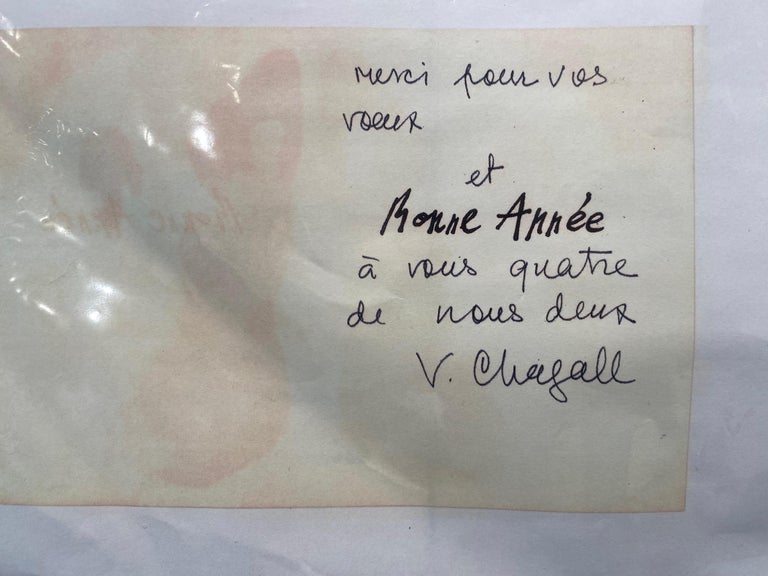 merci pour vos
voeux
et
Bonne Année
à vous quatre
de nous deux
V. Chagall